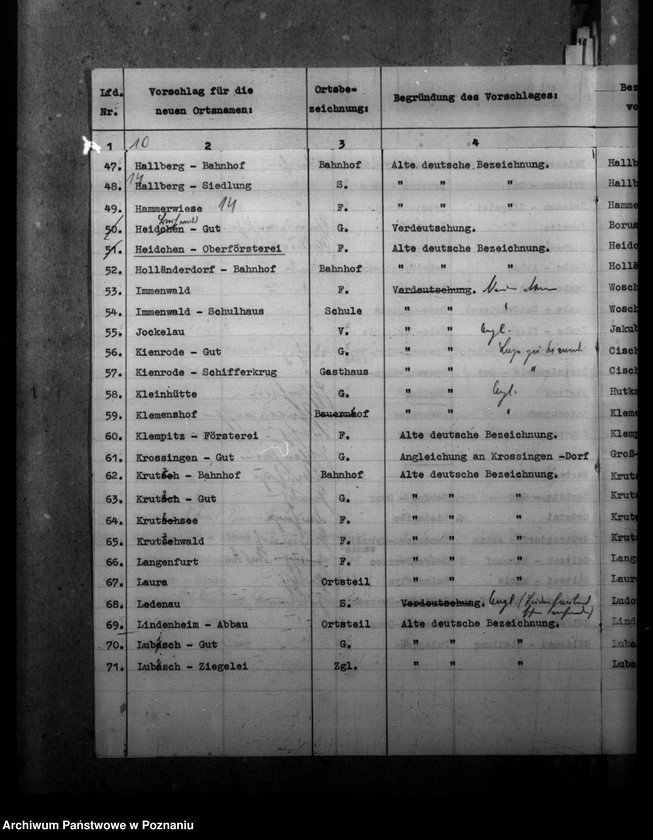 Lfd. Nr. Vorschlag für die neuen Ortsnamen: Ortsbe-zeichnung: Begründung des Vorschlages: Bez
1 2 3 4
10
47. Hallberg - Bahnhof Bahnhof Alte deutsche Bezeichnung. Hallb
14
48. Hallberg - Siedlung S. " " " Hallb
49. Hammerwiese 14 F. " " " Hamme
50. Heidchen - Gut G. Verdeutschung. Borus
51. Heidchen - Oberförsterei F. Alte deutsche Bezeichnung. Heidc
52. Holländerdorf - Bahnhof Bahnhof " " " Hollä
53. Immenwald F. Verdeutschung. Wosch
54. Immenwald - Schulhaus Schule " " " Wosch
55. Jockelau V. " " Angl. Jakub
56. Kienrode - Gut G. " " Cisch
57. Kienrode - Schifferkrug Gasthaus " " " Cisch
58. Kleinhütte G. " " Angl. Hutka
59. Klemenshof Bauernhof " " " Kleme
60. Klempitz - Försterei F. Alte deutsche Bezeichnung. Klemp
61. Krossingen - Gut G. Angleichung an Krossingen -Dorf Groß-
62. Krutsch - Bahnhof Bahnhof Alte deutsche Bezeichnung. Kruts
63. Krutsch - Gut G. " " " Kruts
64. Krutschsee F. " " " Kruts
65. Krutschwald F. " " " Kruts
66. Langenfurt F. " " " Lange
67. Laura Ortsteil " " " Laura
68. Ledenau S. Verdeutschung. Angl. Ludo
69. Lindenheim - Abbau Ortsteil Alte deutsche Bezeichnung. Lind
70. Lubasch - Gut G. " " " Luba
71. Lubasch - Ziegelei Zgl. " " " Luba
Archiwum Państwowe w Poznaniu